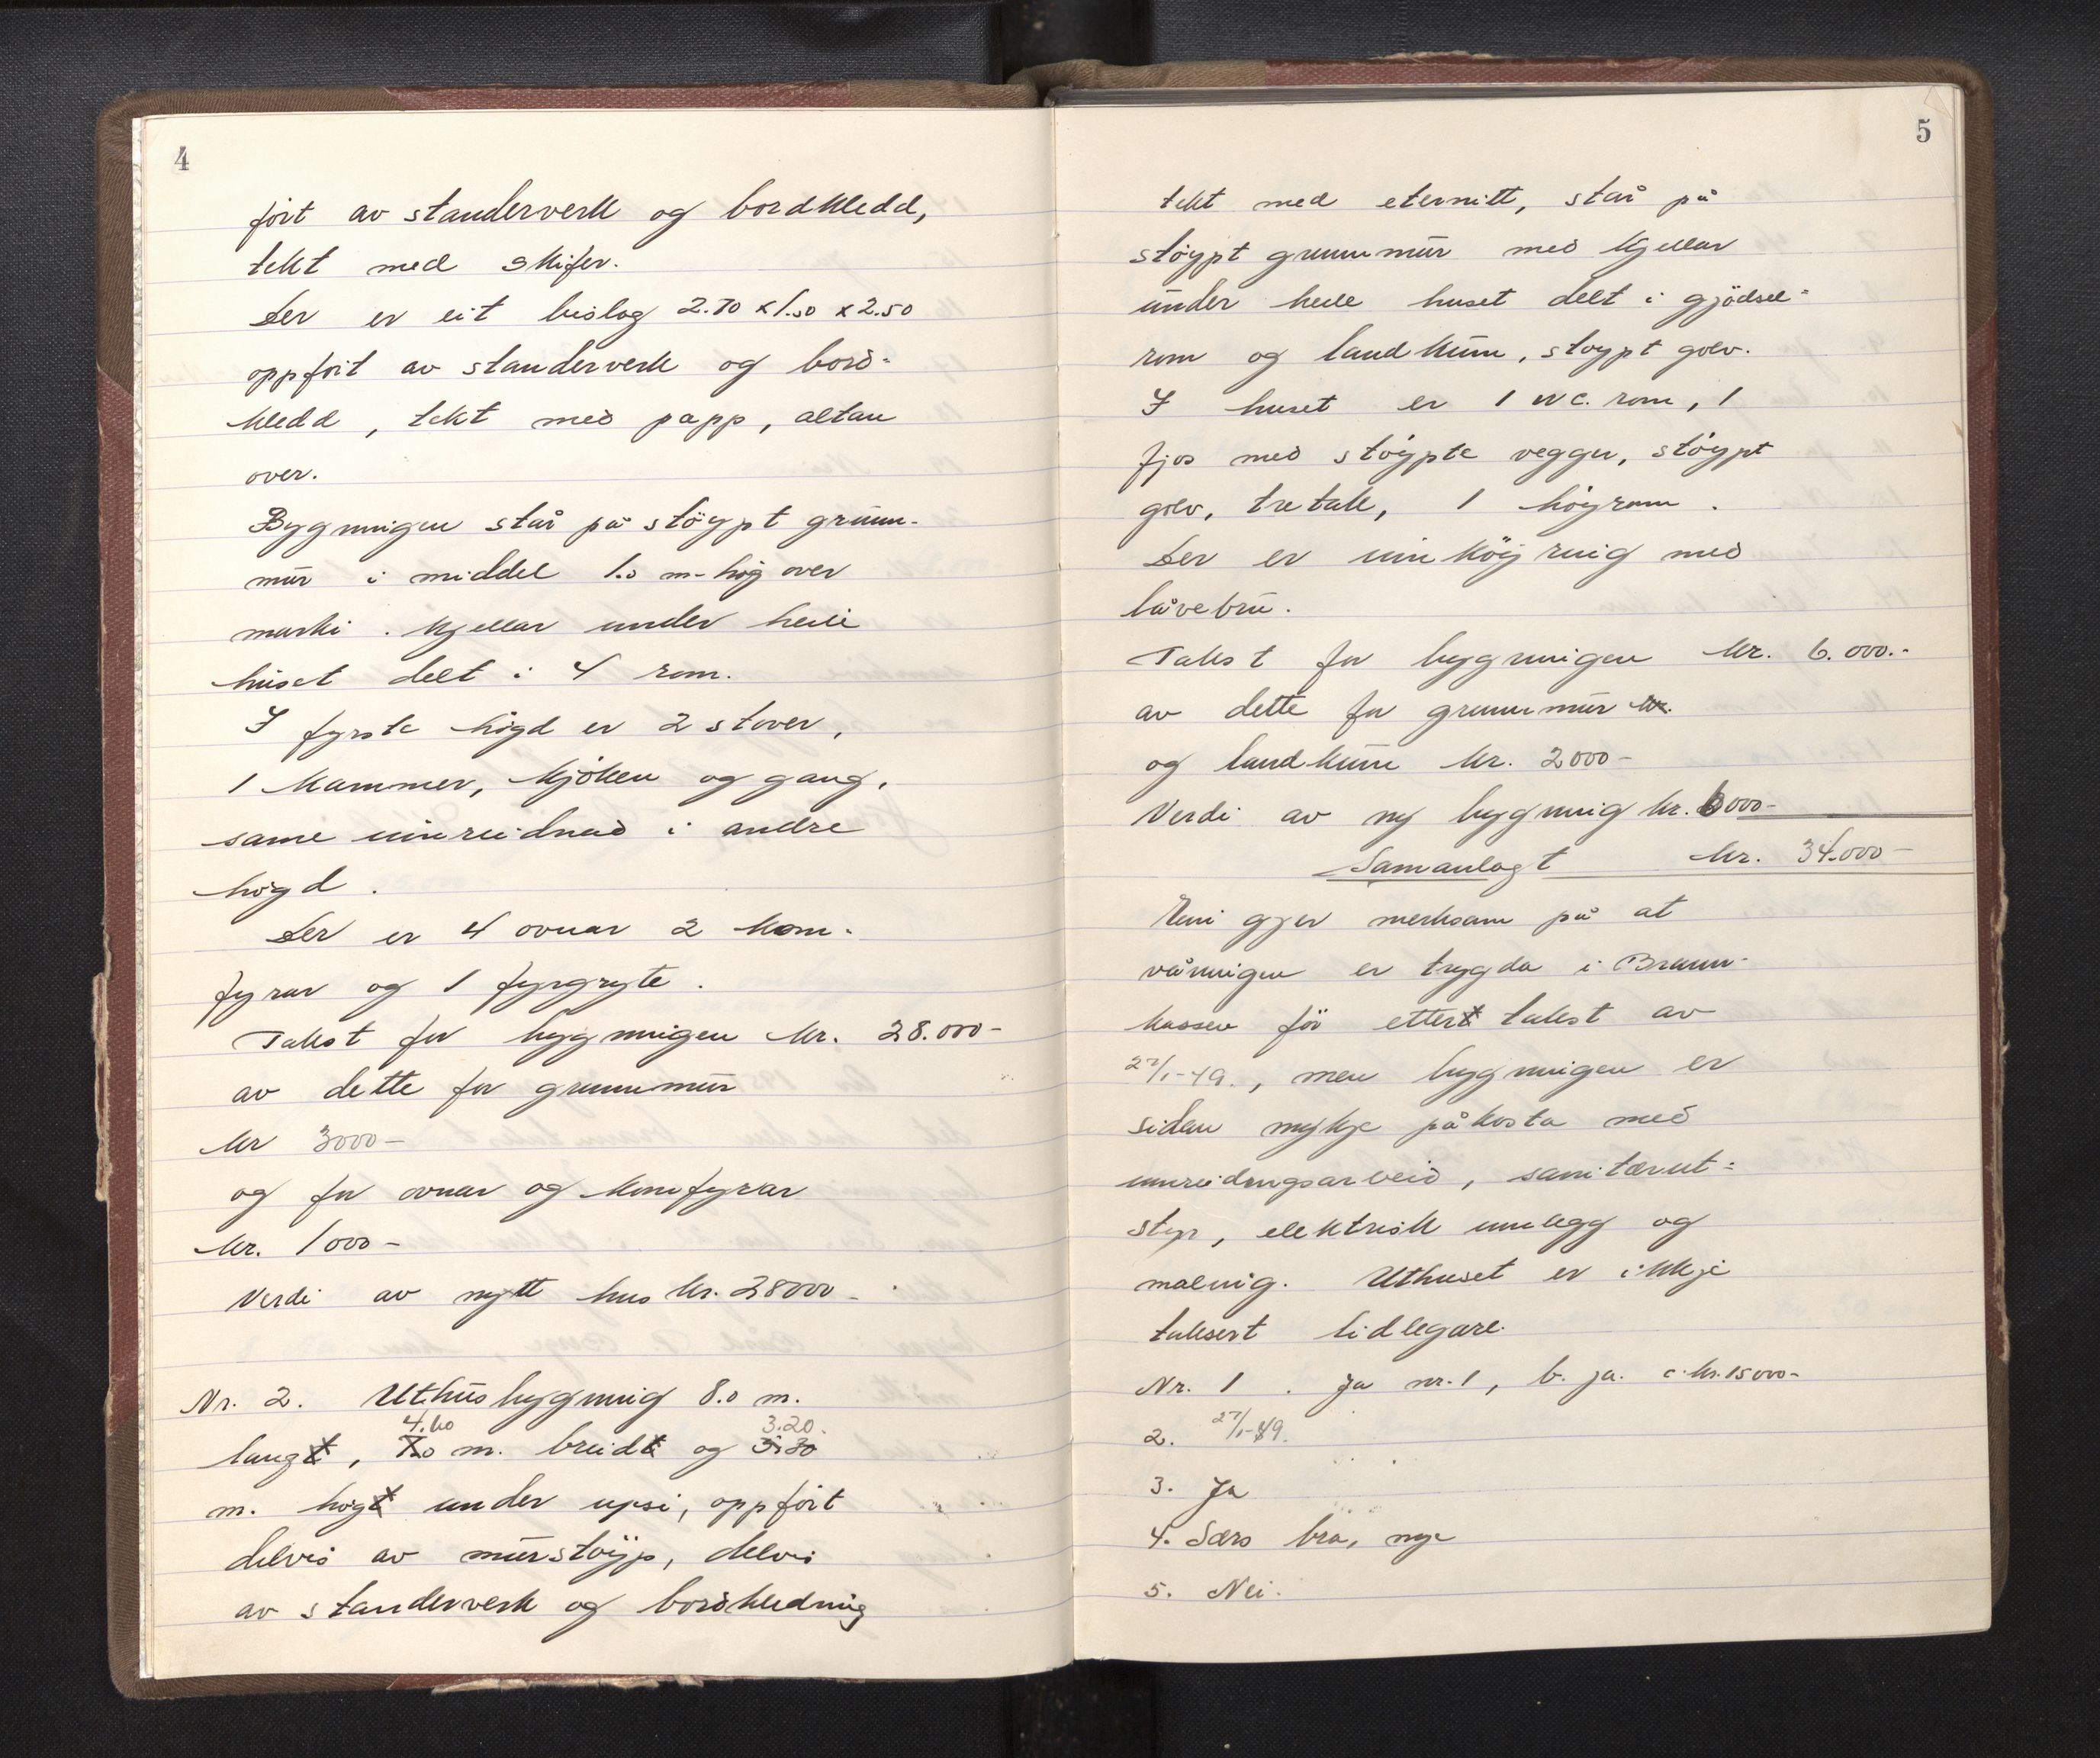 4
ført av standerverk og bordkledd,
tekt med skifer.
Der er eit bislag 2.70 x 1.50 x 2.50
oppført av standerverk og bord=
kledd, tekt med papp, altan
over.
Bygningen står på støypt grunn-
mur i middel 1.0 m høg over
marki. Kjellar under heile
huset delt i 4 rom.
I fyrste høgd er 2 stover,
1 kammer, kjøken og gang,
same innreidnad i andre
høgd.
Der er 4 ovnar 2 kom-
fyrar og 1 fyrgryte.
Takst for bygningen kr. 28.000-
av dette for grunnmur
kr 3000-
og for ovnar og komfyrar
kr. 1000-
Verdi av nytt hus kr. 28000-
Nr. 2. Uthusbygning 8.0 m.
4.60 3.20
langt, 7.0 m. breidt og 3.30
m. høgt under upsi, oppført
delvis av murstøyp, delvis
av standerverk og bordkledning
5
tekt med eternitt, står på
støypt grunnmur med kjellar
under heile huset delt i gjødsel=
rom og landkum, støypt golv.
I huset er 1 w c. rom, 1
fjos med støypte vegger, støypt
golv, tretak, 1 høyrom.
Der er innkøyring med
låvebru.
Takst for bygningen kr. 6.000.-
av dette for grunnmur kr.
og landkum kr. 2000-
Verdi av ny bygning kr. 6000-
Samanlagt kr. 34.000-
Eni gjer merksam på at
våningen er trygda i Brann-
kassen før ettert takst av
27/1-49., men bygningen er
sidan mykje påkosta med
innreidingsarbeid, sanitærut=
styr, elektrisk innlegg og
malnig. Uthuset er ikkje
taksert tidlegare.
Nr. 1. Ja nr. 1, b. ja. c. kr. 15000-
2. 27/1-49.
3. Ja
4. Særs bra, nye
5. Nei.